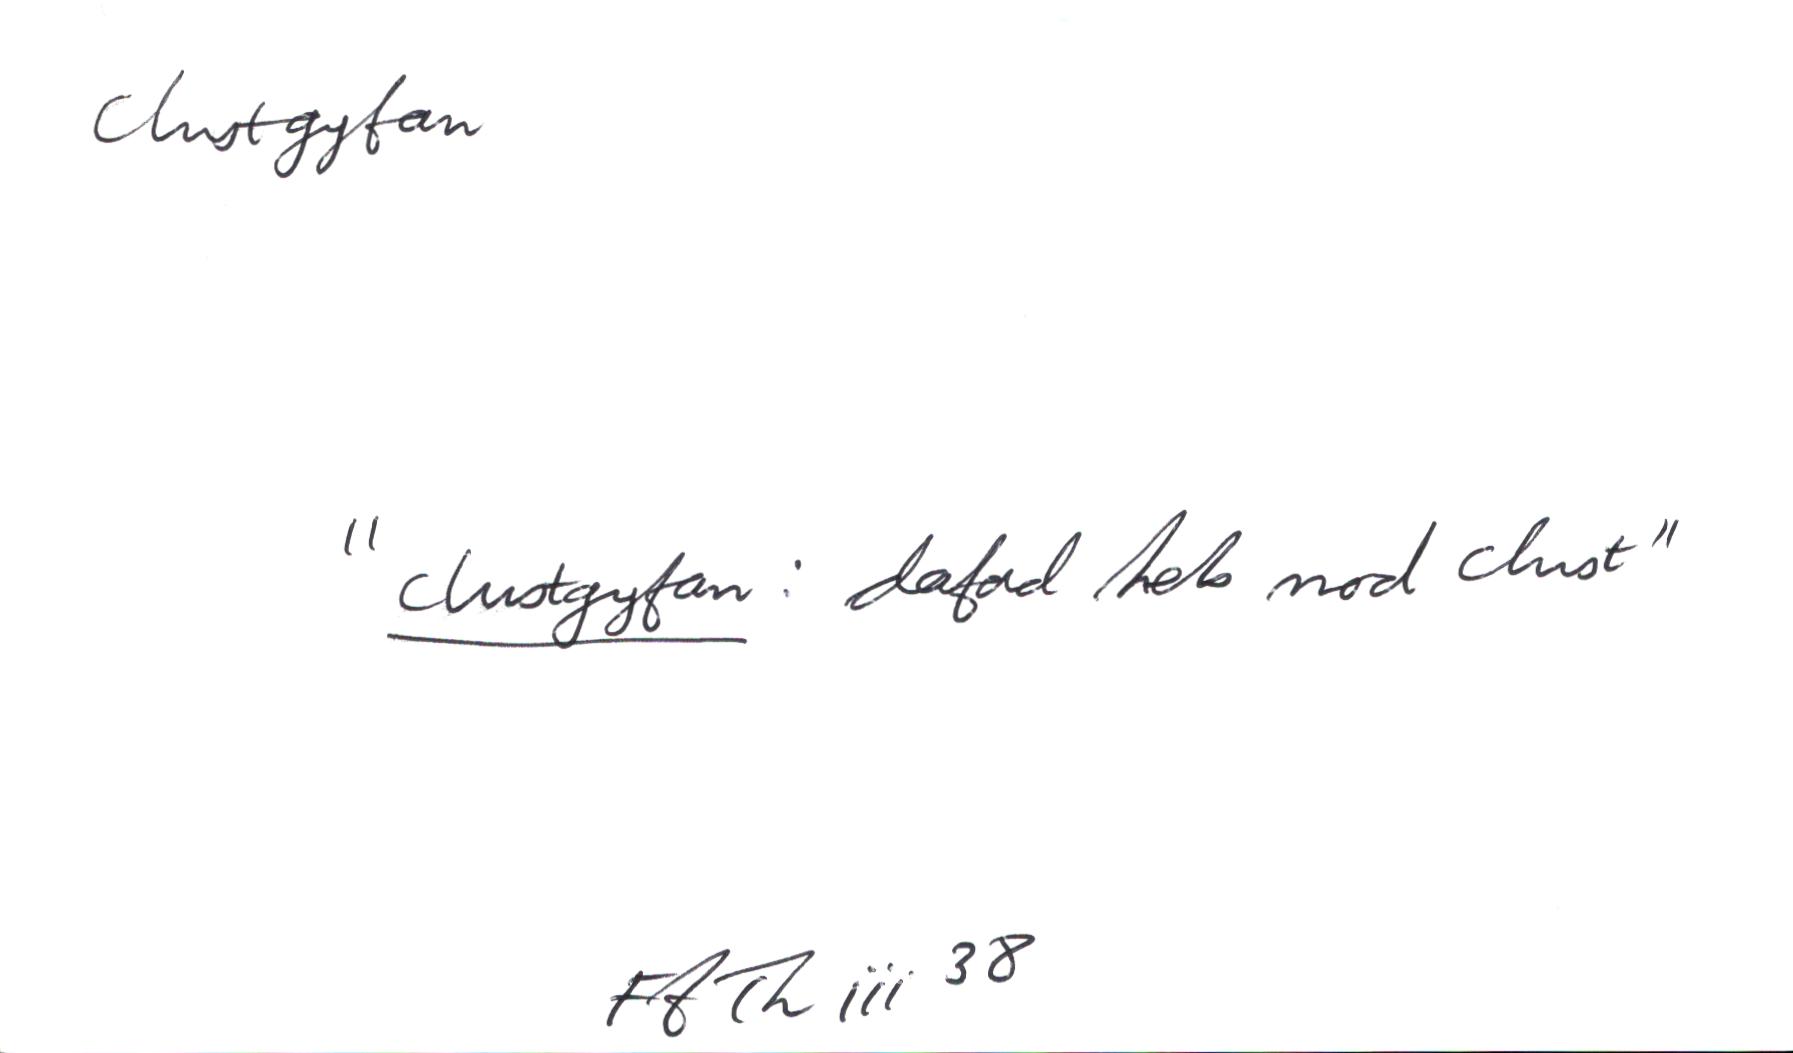 clustgyfan
"clustgyfan: dafad heb nod clust"
Ff Th iii 38